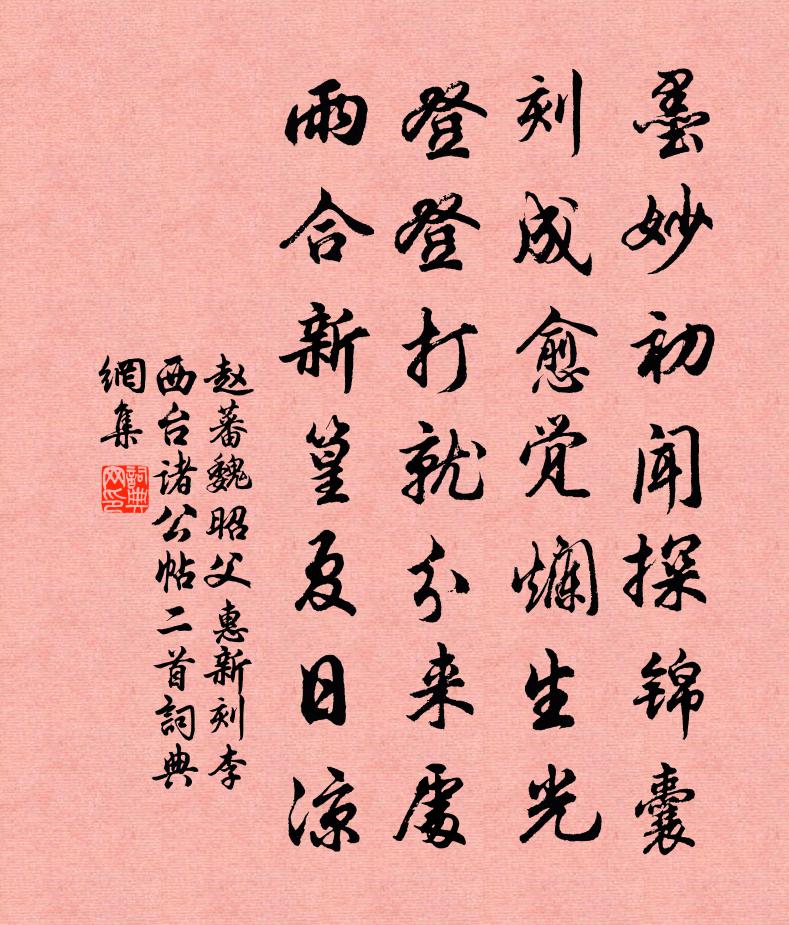 墨妙初闻探锦囊
刻成愈觉斓生光
登登打就分来处
雨合新篁夏日凉
赵蕃魏昭父惠新刻李
西台诸公帖二首詞典
網集
詞典
网印